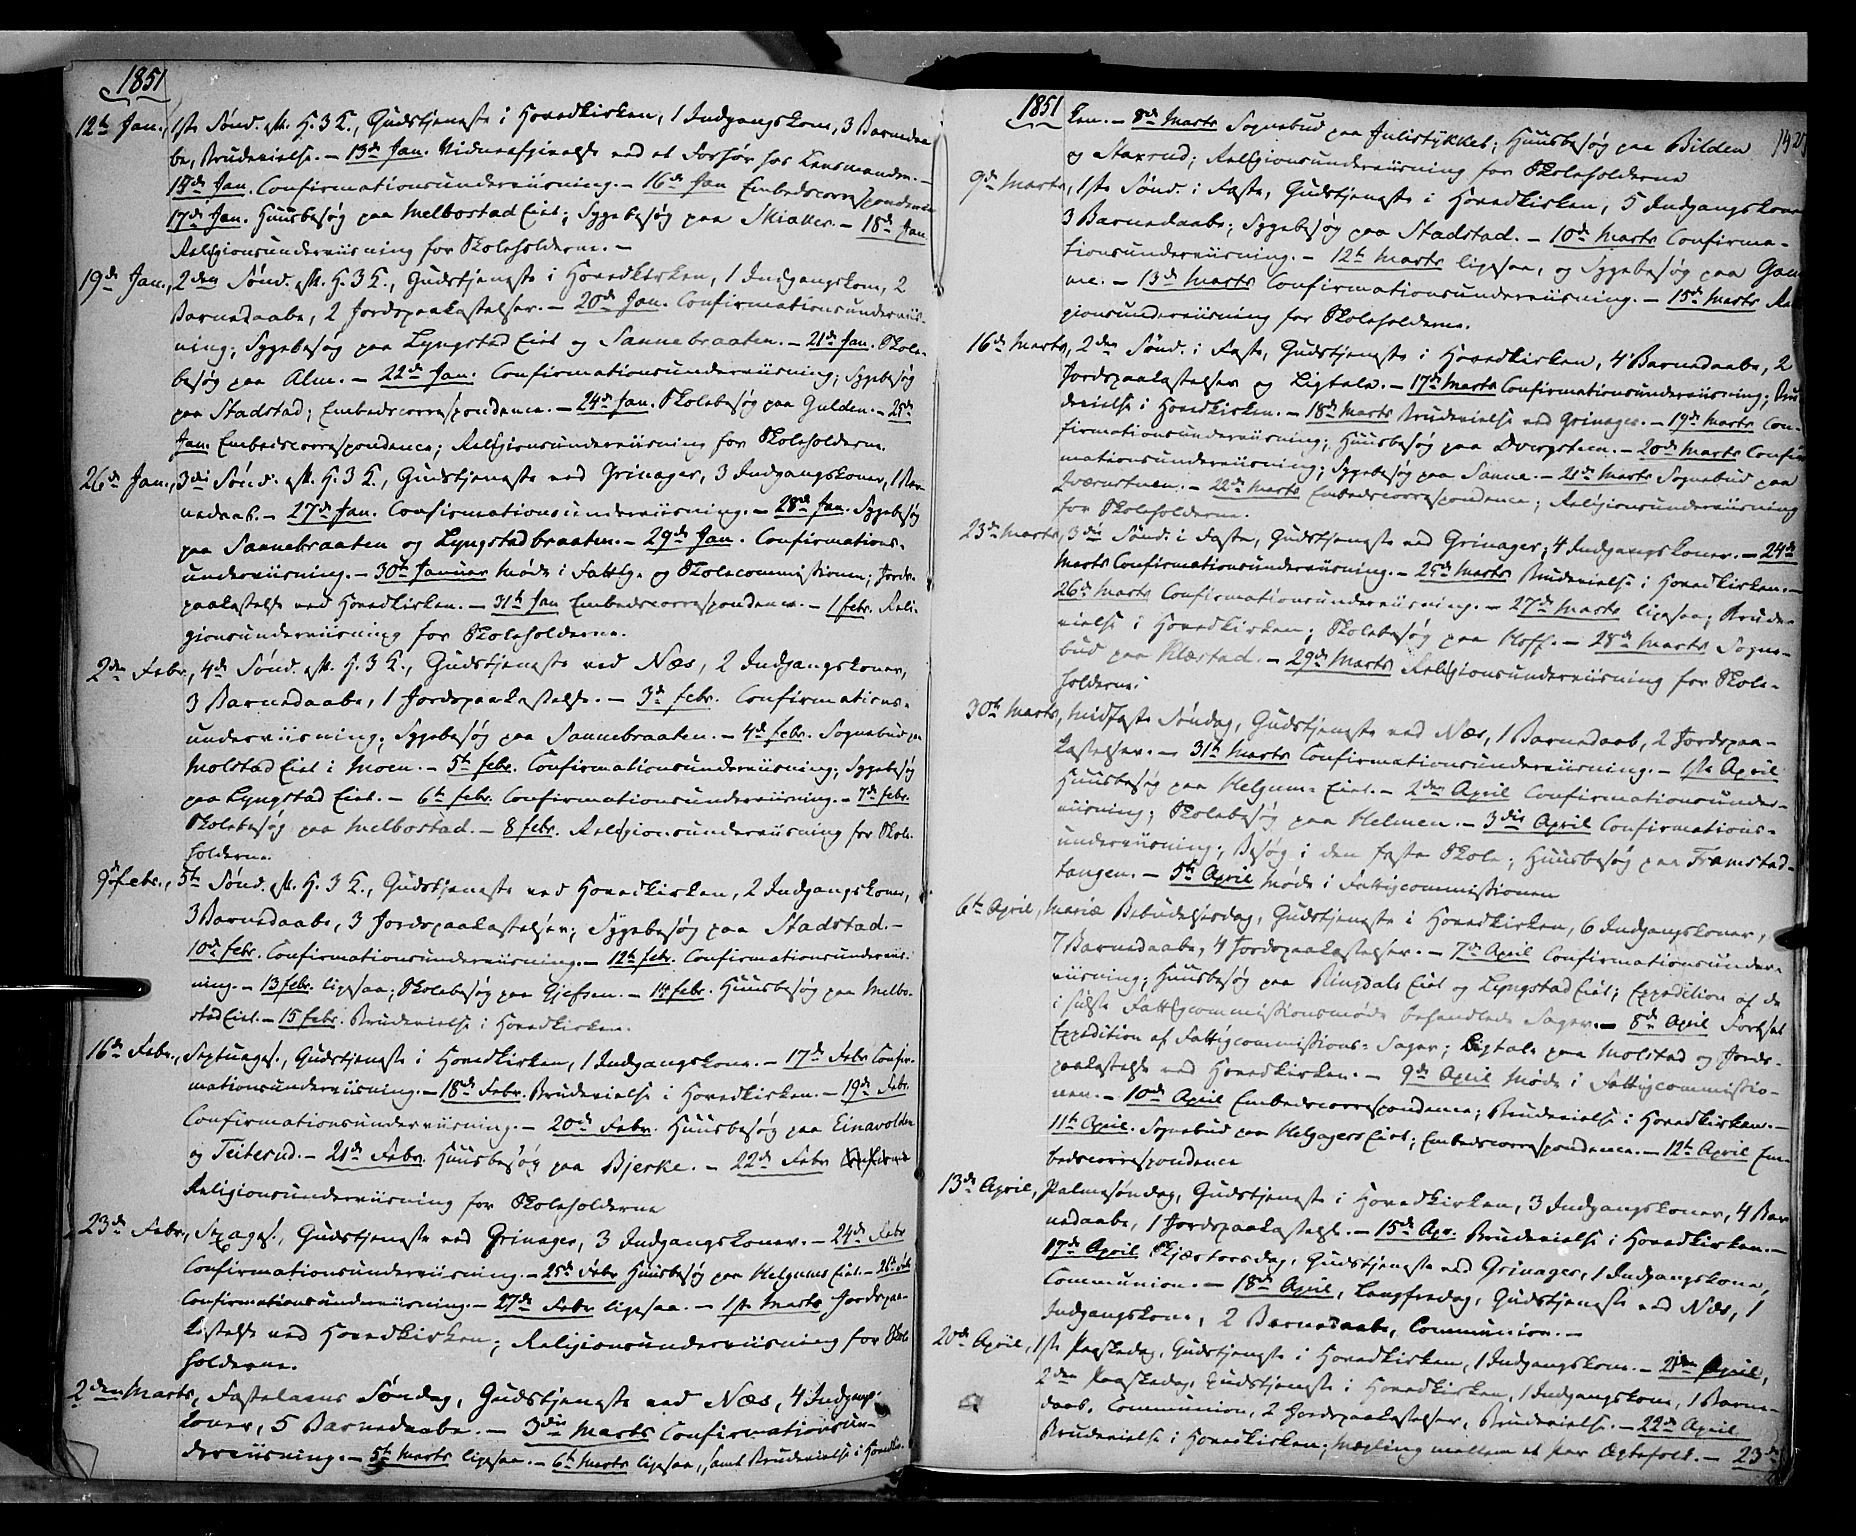 1851
12te Jan., 1ste Sønd. eft. H. 3 K., Gudstjeneste i Hovedkirken, 1 Indgangskone, 3 Barnedaa-
be, Brudevielse. – 13de Jan. Vidneafgivelse ved et Forhør hos Lensmanden. –
14de Jan. Confirmationsunderviisning. – 16de Jan Embedscorrespondence
17de Jan. Huusbesøg paa Melbostad Eiet; Sygebesøg paa Skiaker. – 18de Jan
Religionsunderviisning for Skoleholderne. –
19de Jan., 2den Sønd. eft. H. 3 K., Gudstjeneste i Hovedkirken, 1 Indgangskone, 2
Barnedaabe, 2 Jordspaakastelser. – 20de Jan. Confirmationsunderviis-
ning; Sygebesøg paa Lyngstad Eiet og Sannebraaten. – 21de Jan. Skole-
besøg paa Alm. – 22de Jan. Confirmationsunderviisning; Sygebesøg
paa Stadstad; Embedscorrespondence. – 24de Jan. Skolebesøg paa Gulden. – 25de
Jan. Embedscorrespondence; Religionsunderviisning for Skoleholderne.
26de Jan., 3die Sønd. eft. H. 3 K., Gudstjeneste ved Grinager, 3 Indgangskoner, 1 Bar-
nedaab. – 27de Jan. Confirmationsunderviisning. – 28de Jan. Sygebesøg
paa Sannebraaten og Lyngstadbraaten. – 29de Jan. Confirmations-
underviisning. – 30te Januar Møde i Fattig- og Skolecommissionen; Jords-
paakastelse ved Hovedkirken. – 31te Jan Embedscorrespondence. – 1 febr. Reli-
gionsunderviisning for Skoleholderne.
2den Febr., 4de Sønd. eft. H. 3 K., Gudstjeneste ved Næs, 2 Indgangskoner,
3 Barnedaabe, 1 Jordspaakastelse. – 3de febr. Confirmations-
underviisning; Sygebesøg paa Sannebraaten. – 4de febr. Sognebud paa
Molstad Eiet i Moen. – 5te febr. Confirmationsunderviisning; Sygebesøg
paa Lyngstad Eiet. – 6te febr. Confirmationsunderviisning. – 7de febr.
Skolebesøg paa Melbostad. – 8 febr. Religionsunderviisning for Skole-
holderne.
9de febr., 5te Sønd. eft. H. 3 K., Gudstjeneste ved Hovedkirken, 2 Indgangskoner,
3 Barnedaabe, 3 Jordspaakastelser; Sygebesøg paa Stadstad. –
10de febr. Confirmationsunderviisning. – 12te febr. Confirmationsunderviis-
ning. – 13 febr. ligesaa; Skolebesøg paa Gjefsen. – 14 febr. Huusbesøg paa Melbo-
stad Eiet. – 15 febr. Brudevielse i Hovedkirken.
16de Febr., Septuages., Gudstjeneste i Hovedkirken, 1 Indgangskone. – 17de Febr Confir-
mationsunderviisning. – 18de Febr. Brudevielse i Hovedkirken. – 19de Febr.
Confirmationsunderviisning. – 20de Febr. Huusbesøg paa Einavolden
og Teiterud. – 21de Febr. Huusbesøg paa Bjerke. – 22de Febr
Religionsunderviisning for Skoleholderne
23de Febr., Sexages., Gudstjeneste ved Grinager, 3 Indgangskoner. – 24de Febr
Confirmationsunderviisning. – 25de Febr Huusbesøg paa Helgums Eiet. – 26de Febr
Confirmationsunderviisning. – 27de Febr ligesaa. – 1ste Marts Jordspaa-
kastelse ved Hovedkirken; Religionsunderviisning for Skole-
holderne.
2den Marts, Fastelavns Søndag, Gudstjeneste ved Næs, 4 Indgangs-
koner, 5 Barnedaabe. – 3die Marts Confirmationsun-
derviisning. – 5te Marts ligesaa. – 6te Marts ligesaa, samt Brudevielse i Hovedkir-
1851
ken. – 8de Marts Sognebud paa Julistykket; Huusbesøg paa Bilden
og Staxrud; Religionsunderviisning for Skoleholderne
9de Marts, 1ste Sønd. i Faste, Gudstjeneste i Hovedkirken, 5 Indgangskoner
3 Barnedaabe; Sygebesøg paa Stadstad. – 10de Marts Confirma-
tionsunderviisning. – 12te Marts ligesaa, og Sygebesøg paa Gam-
me. – 13de Marts Confirmationsunderviisning. – 15de Marts Reli-
gionsunderviisning for Skoleholderne.
16de Marts, 2den Sønd. i Faste, Gudstjeneste i Hovedkirken, 4 Barnedaabe, 2
Jordspaakastelser og Ligtale. – 17de Marts Confirmationsunderviisning; Bru-
devielse i Hovedkirken. – 18de Marts Brudevielse ved Grinager. – 19de Marts Con-
firmationsunderviisning; Huusbesøg paa Dvergsteen. – 20de Marts Confir-
mationsunderviisning; Sygebesøg paa Sanne. – 21de Marts Sognebud paa
Kværnstuen. – 22de Marts Embedscorrespondence; Religionsunderviisning
for Skoleholderne.
23de Marts, 3die Sønd. i Faste, Gudstjeneste ved Grinager, 4 Indgangskoner. – 24de
Marts Confirmationsunderviisning. – 25de Marts Brudevielse i Hovedkirken. –
26de Marts Confirmationsunderviisning. – 27de Marts ligesaa; Brude-
vielse i Hovedkirken; Skolebesøg paa Hoff. – 28de Marts Sogne-
bud paa Klæstad. – 29de Marts Religionsunderviisning for Skole-
holderne.
30te Marts, Midfaste Søndag, Gudstjeneste ved Næs, 1 Barnedaab, 2 Jordspaa-
kastelser. – 31te Marts Confirmationsunderviisning. – 1ste April
Huusbesøg paa Helgum-Eiet. – 2den April Confirmationsunder-
viisning; Skolebesøg paa Helmen. – 3die April Confirmations-
underviisning; Besøg i den faste Skole; Huusbesøg paa Framstad-
tangen. – 5te April Møde i Fattigcommissionen
6te April, Mariæ Bebudelsesdag, Gudstjeneste i Hovedkirken, 6 Indgangskoner,
7 Barnedaabe, 4 Jordspaakastelser. – 7de April Confirmationsunder-
viisning; Huusbesøg paa Ringdals Eiet og Lyngstad Eiet; Expedition af de
i sidste Fattigcommissionsmøde behandlede Sager. – 8de April Fortsat
Expedition af Fattigcommissions-Sager; Ligtale paa Molstad og Jords-
paakastelse ved Hovedkirken. – 9de April Møde i Fattigcommissio-
nen. – 10de April Embedscorrespondence; Brudevielse i Hovedkirken. –
11te April. Sognebud paa Helgagers Eiet; Embedscorrespondence. – 12te April Em-
bedscorrespondence
13de April, Palmesøndag, Gudstjeneste i Hovedkirken, 3 Indgangskoner, 4 Bar-
nedaabe, 1 Jordspaakastelse. – 15de Apr. Brudevielse i Hovedkirken. –
17de April Skjærtorsdag, Gudstjeneste ved Grinager, 1 Indgangskone,
Communion. – 18de April, Langfredag, Gudstjeneste ved Næs, 1
Indgangskone, 2 Barnedaabe, Communion. –
20de April, 1ste Paaskedag, Gudstjeneste i Hovedkirken, 1 Indgangskone. – 21de April,
2den Paaskedag, Gudstjeneste i Hovedkirken, 1 Indgangskone, 1 Barne-
daab, Communion, 2 Jordspaakastelser, Brudevielse. – 22de April
Brudevielse i Hovedkirken; Mægling mellem et Par Ægtefolk. – 23de